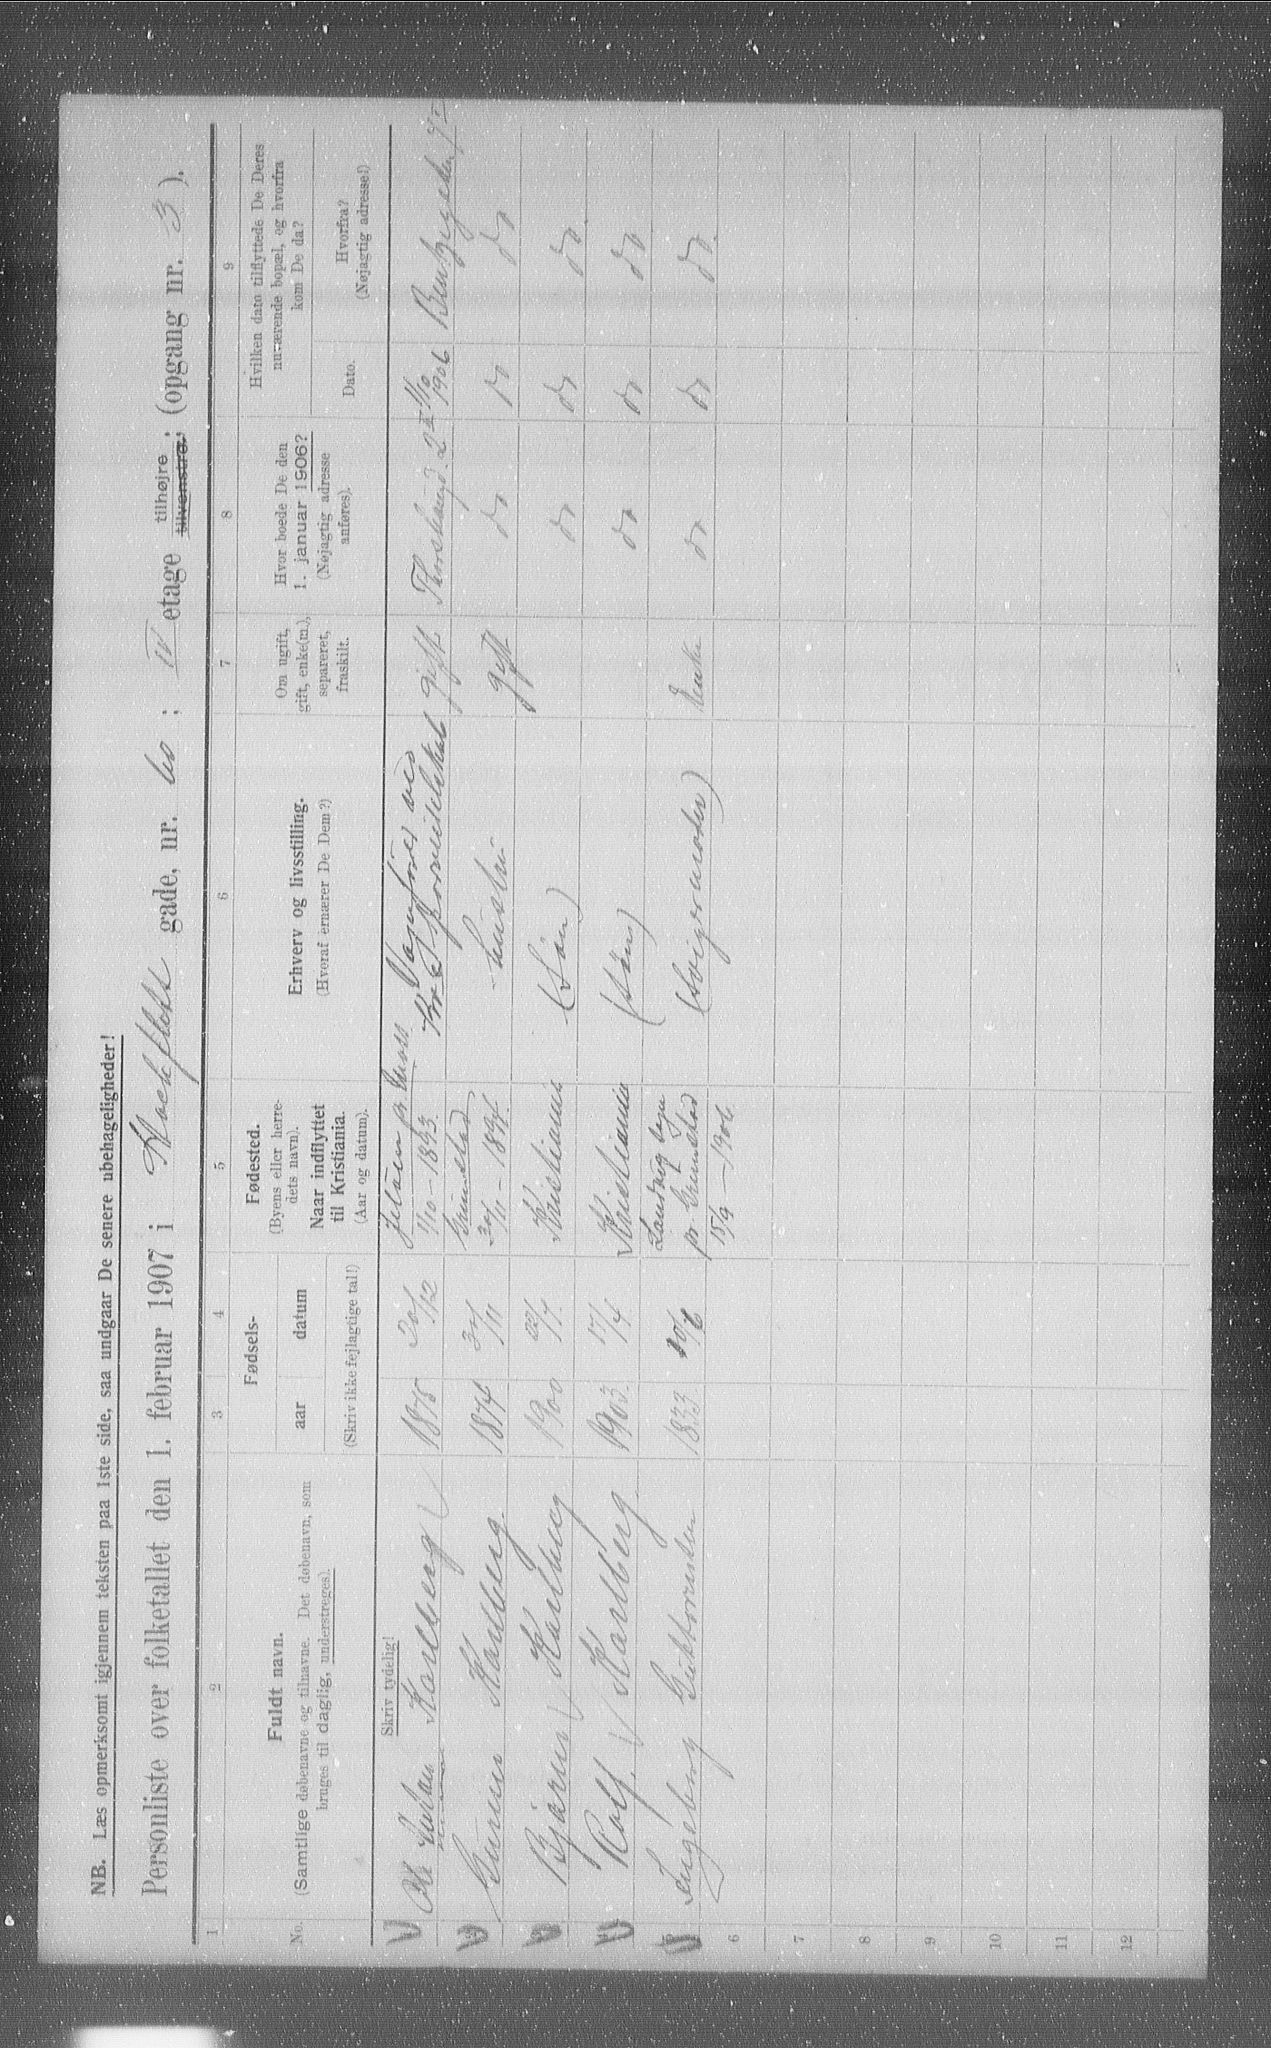 NB. Læs opmerksomt igjennem teksten paa 1ste side, saa undgaar De senere ubehageligheder!
Personliste over folketallet den 1. februar 1907 i gade, nr. 60 ; IV etage tilhøjre, tilvenstre, (opgang nr. 3 ).
1 2 3 4 5 6 7 8 9
No.
Fuldt navn.
(Samtlige døbenavne og tilnavne. Det døbenavn, som
bruges til daglig, understreges).
Skriv tydelig!
Fødsels-
aar datum
(Skriv ikke fejlagtige tal!)
Fødested.
(Byens eller herre-
dets navn).
Naar indflyttet
til Kristiania.
(Aar og datum).
Erhverv og livsstilling.
(Hveraf ernærer De Dem?)
Om ugift,
gift, enke(m.),
separeret,
fraskilt.
Hvor boede De den
1. januar 1906?
(Nøjagtig adresse
anføres).
Hvilken dato tilflyttede De Deres
nuværende bopæl, og hvorfra
kom De da?
Dato.
Hvorfra?
(Nøjagtig adresse!)
Ole Johan Karlberg 1875 20/12 Jeløen pr. Moss 1/10 - 1893 Vognfører ved gift 1/10 1906
Karlberg 1874 30/11 Grimstad 30/11 - 1894 Hustru gift do do do
Bjarne Karlberg 1900 22/7 Kristiania (Søn) do do do.
Rolf Karlberg 1903 17/4 Kristiania (Søn) do do do
Ingeborg 1833 10/6 Landvig sogn pr Grimstad 15/9 - 1906 (Svigermoder) Enke do do do.
6
7
8
9
10
11
12